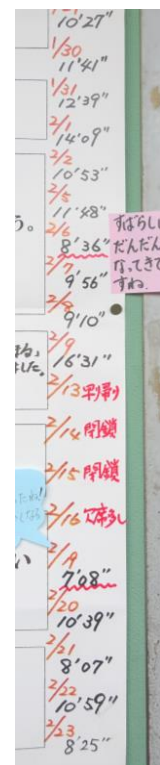 10'27"
1/30
11'41"
1/31
12'39"
2/1
14'09"
2/2
10'53"
2/5
11'48"
2/6
8'36"
2/7
9'56"
2/8
9'10"
2/9
16'31"
2/13 早帰り
2/14 閉鎖
2/15 閉鎖
2/16 欠席多し
2/19
7'08"
2/20
10'39"
2/21
8'07"
2/22
10'59"
2/23
8'25"
う。
ました。
い
だんだん
なってきて
すね。